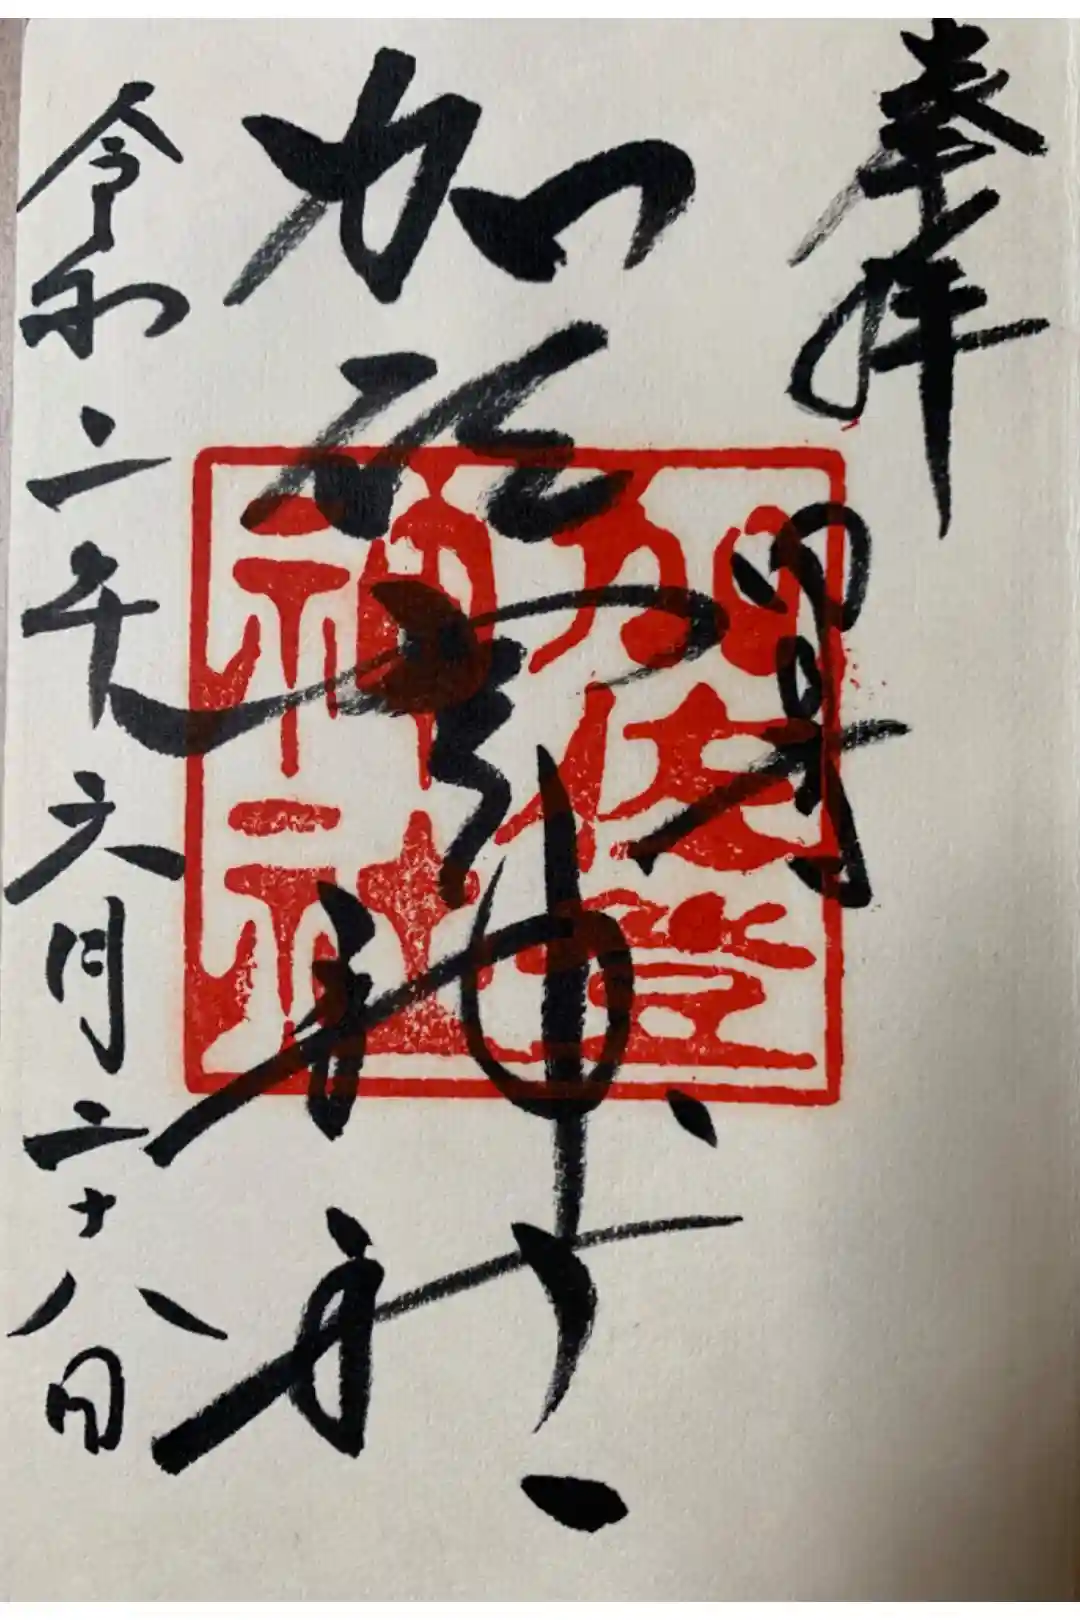 奉拝
加佐登神社
加佐登
神社
令和二年六月二十八日